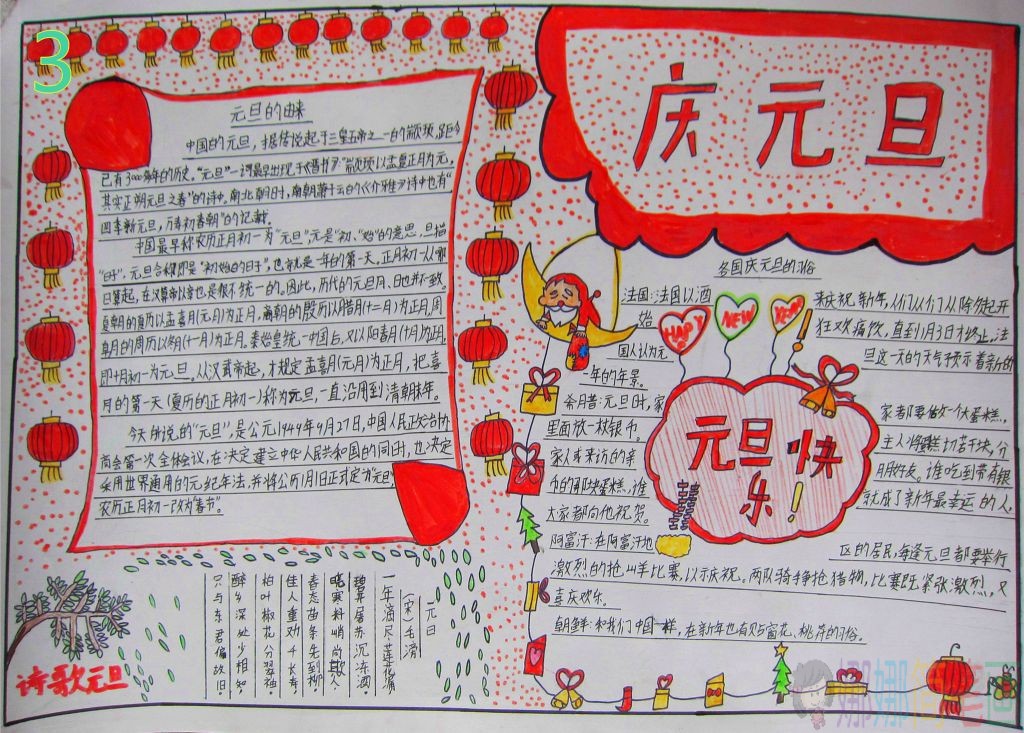 3
庆元旦
元旦的由来
中国的元旦，据传说起于三皇五帝之一的颛顼，距今
已有3000多年的历史。"元旦"一词最早出现于《晋书》："颛顼以孟夏正月为元，
其实正朔元旦之春"的诗中。南北朝时，南朝萧子云的《介雅》诗中也有"
四季新元旦，万寿初春朝"的记载。
中国最早称农历正月初一为"元旦"，元是"初"、"始"的意思，旦指
"日子"，元旦合称即是"初始的日子"，也就是一年的第一天。正月初一从哪
日算起，在汉武帝以前也是很不统一的。因此，历代的元旦月、日也并不一致。
夏朝的夏历以孟喜月(元月)为正月，商朝的殷历以腊月(十二月)为正月，周
阜月的周历以冬月(十一月)为正月。秦始皇统一中国后，又以阳春月(十月)为正月，
即十月初一为元旦。从汉武帝起，才规定孟喜月(元月)为正月，把喜
月的第一天(夏历的正月初一)称为元旦，一直沿用到清朝末年。
今天所说的"元旦"，是公元1949年9月27日，中国人民政治协
商会第一次全体会议，在决定建立中华人民共和国的同时，也决定
采用世界通用的元纪年法，并将公历1月1日正式定为"元旦"，
农历正月初一改为"春节"。
各国庆元旦的习俗
法国：法国以酒来庆祝新年，人们从
始狂欢痛饮，直到1月3日才终止。法
国人认为元旦这一天的天气预示着新的
一年的年景。
希腊：元旦时，家家都要做个大蛋糕，
里面放一枚银币。主人将蛋糕切若干块，分
家人或来访的亲朋好友。谁吃到带有银
币的那块蛋糕，谁就成了新年最幸运的人，
大家都向他祝贺。
阿富汗：在阿富汗地区的居民，每逢元旦都要举行
激烈的抢山羊比赛，以示庆祝。两队骑手争抢猎物，比赛既紧张激烈，又
喜庆欢乐。
朝鲜：和我们中国一样，在新年也有贴窗花、桃符的习俗。
HAPPY
NEW
YEAR
元旦快
乐！
元日
(宋)毛滂
一年滴尽莲花漏
碧井屠苏沉冻酒。
晓寒料峭尚欺人
春态苗条先到柳。
佳人重劝千长寿
柏叶椒花分翠袖
醉乡深处少相知。
只与东君偏故旧
诗歌元旦